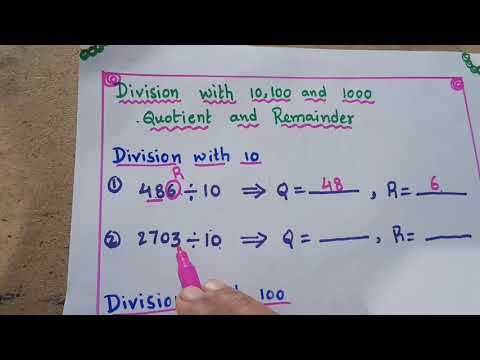 Division with 10,100 and 1000
. Quotient and Remainder
Division with 10
R
① 486 ÷ 10 ⇒ Q = 48 , R = 6
② 2703 ÷ 10 ⇒ Q = ____ , R = ____
Division with 100